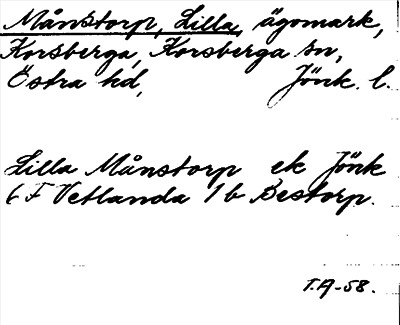 Månstorp, Lilla, ägomark,
Korsberga, Korsberga sn,
Östra hd, Jönk. l.
Lilla Månstorp ek Jönk
6 F Vetlanda 1 b Bestorp.
T.A-58.